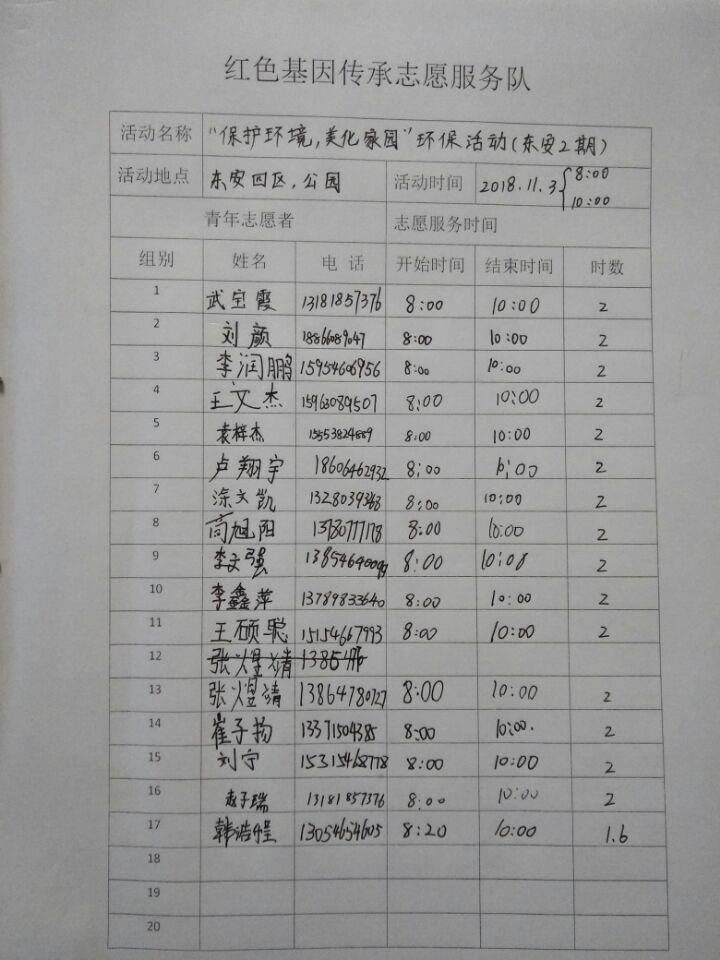 红色基因传承志愿服务队
活动名称 "保护环境,美化家园"环保活动(东安2期)
活动地点 东安四区,公园 活动时间 2018.11.3 8:00
10:00
青年志愿者 志愿服务时间
组别 姓名 电话 开始时间 结束时间 时数
1 武宝霞 13181857376 8:00 10:00 2
2 刘颜 18866089047 8:00 10:00 2
3 李润鹏 15954606956 8:00 10:00 2
4 王文杰 15963089507 8:00 10:00 2
5 袁梓杰 8:00 10:00 2
6 卢翔宇 18606462932 8:00 10:00 2
7 涂文凯 8:00 10:00 2
8 高旭阳 13780777178 8:00 10:00 2
9 李文强 8:00 10:00 2
10 李鑫萍 13789833640 8:00 10:00 2
11 王硕聪 15154667993 8:00 10:00 2
12 张煜婧
13 张煜婧 13864780727 8:00 10:00 2
14 崔子扬 13371504385 8:00 10:00. 2
15 刘宁 15315468778 8:00 10:00 2
16 赵子瑞 13181857376 8:00 10:00 2
17 韩浩 13054654605 8:20 10:00 1.6
18
19
20